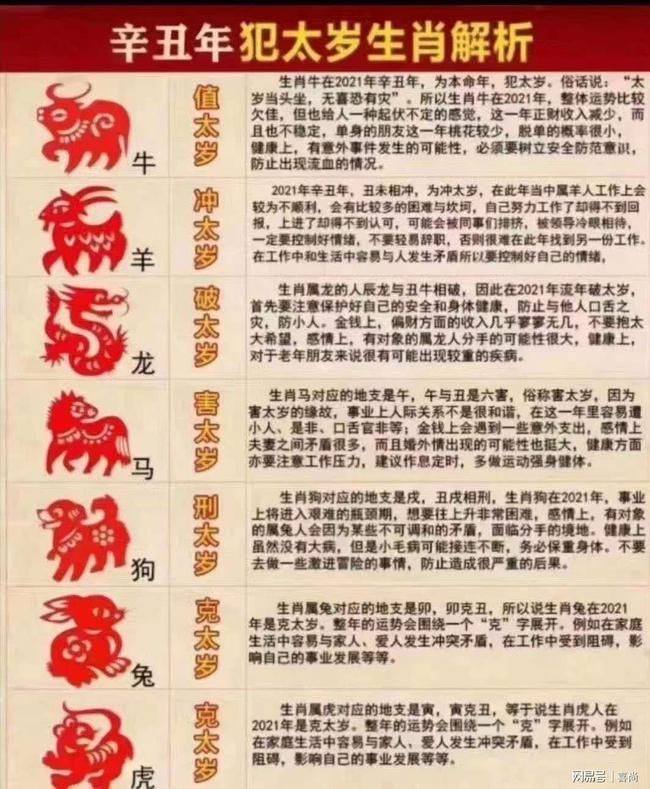 辛丑年犯太岁生肖解析
牛
值太岁
生肖牛在2021年辛丑年，为本命年，犯太岁。俗话说：“太
岁当头坐，无喜恐有灾”。所以生肖牛在2021年，整体运势比较
欠佳，但也给人一种起伏不定的感觉，这一年正财收入减少，而
且也不稳定，单身的朋友这一年桃花较少，脱单的概率很小，
健康上，有意外事件发生的可能性，必须要树立安全防范意识，
防止出现流血的情况。
羊
冲太岁
2021年辛丑年，丑未相冲，为冲太岁，在此年当中属羊人工作上会
较为不顺利，会有比较多的困难与坎坷，自己努力工作了却得不到回
报，上进了却得不到认可，可能会被同事们排挤，被领导冷眼相待，
一定要控制好情绪，不要轻易辞职，否则很难在此年找到另一份工作。
在工作中和生活中容易与人发生矛盾所以要控制好自己的情绪，
龙
破太岁
生肖属龙的人辰龙与丑牛相破，因此在2021年流年破太岁，
首先要注意保护好自己的安全和身体健康，防止与他人口舌之
灾，防小人。金钱上，偏财方面的收入几乎寥寥无几，不要抱太
大希望，感情上，有对象的属龙人分手的可能性很大，健康上，
对于老年朋友来说很有可能出现较重的疾病。
马
害太岁
生肖马对应的地支是午，午与丑是六害，俗称害太岁，因为
害太岁的缘故，事业上人际关系不是很和谐，在这一年里容易遭
小人、是非、口舌官非等；金钱上会遇到一些意外支出，感情上
夫妻之间矛盾很多，而且婚外情出现的可能性也挺大，健康方面
亦要注意工作压力，建议作息定时，多做运动强身健体。
狗
刑太岁
生肖狗对应的地支是戌，丑戌相刑，生肖狗在2021年，事业
上将进入艰难的瓶颈期，想要往上升非常困难，感情上，有对象
的属兔人会因为某些不可调和的矛盾，面临分手的境地。健康上
虽然没有大病，但是小毛病可能接连不断，务必保重身体。不要
去做一些激进冒险的事情，防止造成很严重的后果。
兔
克太岁
生肖属兔对应的地支是卯，卯克丑，所以说生肖兔在2021
年是克太岁。整年的运势会围绕一个“克”字展开。例如在家庭
生活中容易与家人、爱人发生冲突矛盾，在工作中受到阻碍，影
响自己的事业发展等等。
虎
克太岁
生肖属虎对应的地支是寅，寅克丑，等于说生肖虎人在
2021年是克太岁。整年的运势会围绕一个“克”字展开。例如
在家庭生活中容易与家人、爱人发生冲突矛盾，在工作中受到
阻碍，影响自己的事业发展等等。
网易号 | 喜尚